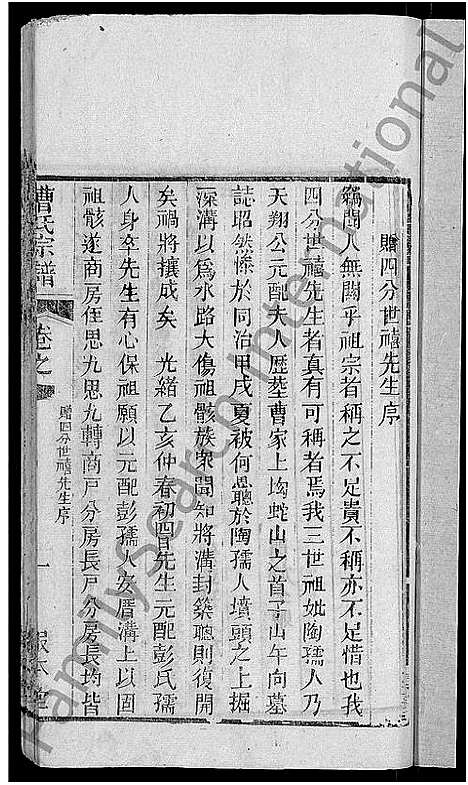 贈四分世禧先生序
竊聞人無關乎祖宗者稱之不足貴不稱亦不足惜也我
四分世禧先生者真有可稱者焉我三世祖妣陶孺人乃
天翔公元配夫人歷塟曹家上坳蛇山之首子山午向墓
誌昭然慘於同治甲戌夏被何聰於陶孺人墳頭之上掘
深溝以為水路大傷祖骸族眾聞知將溝封築聰則復開
矣禍將攘成矣 光緒乙亥仲春初四日先生元配彭氏孺
人身卒先生有心保祖願以元配彭孺人安厝溝上以固
祖骸遂商房侄思九思九轉商戶分房長戶分房長均皆
曹氏宗譜
卷之
贈四分世禧先生序
一
敦本堂
FamilySearch International